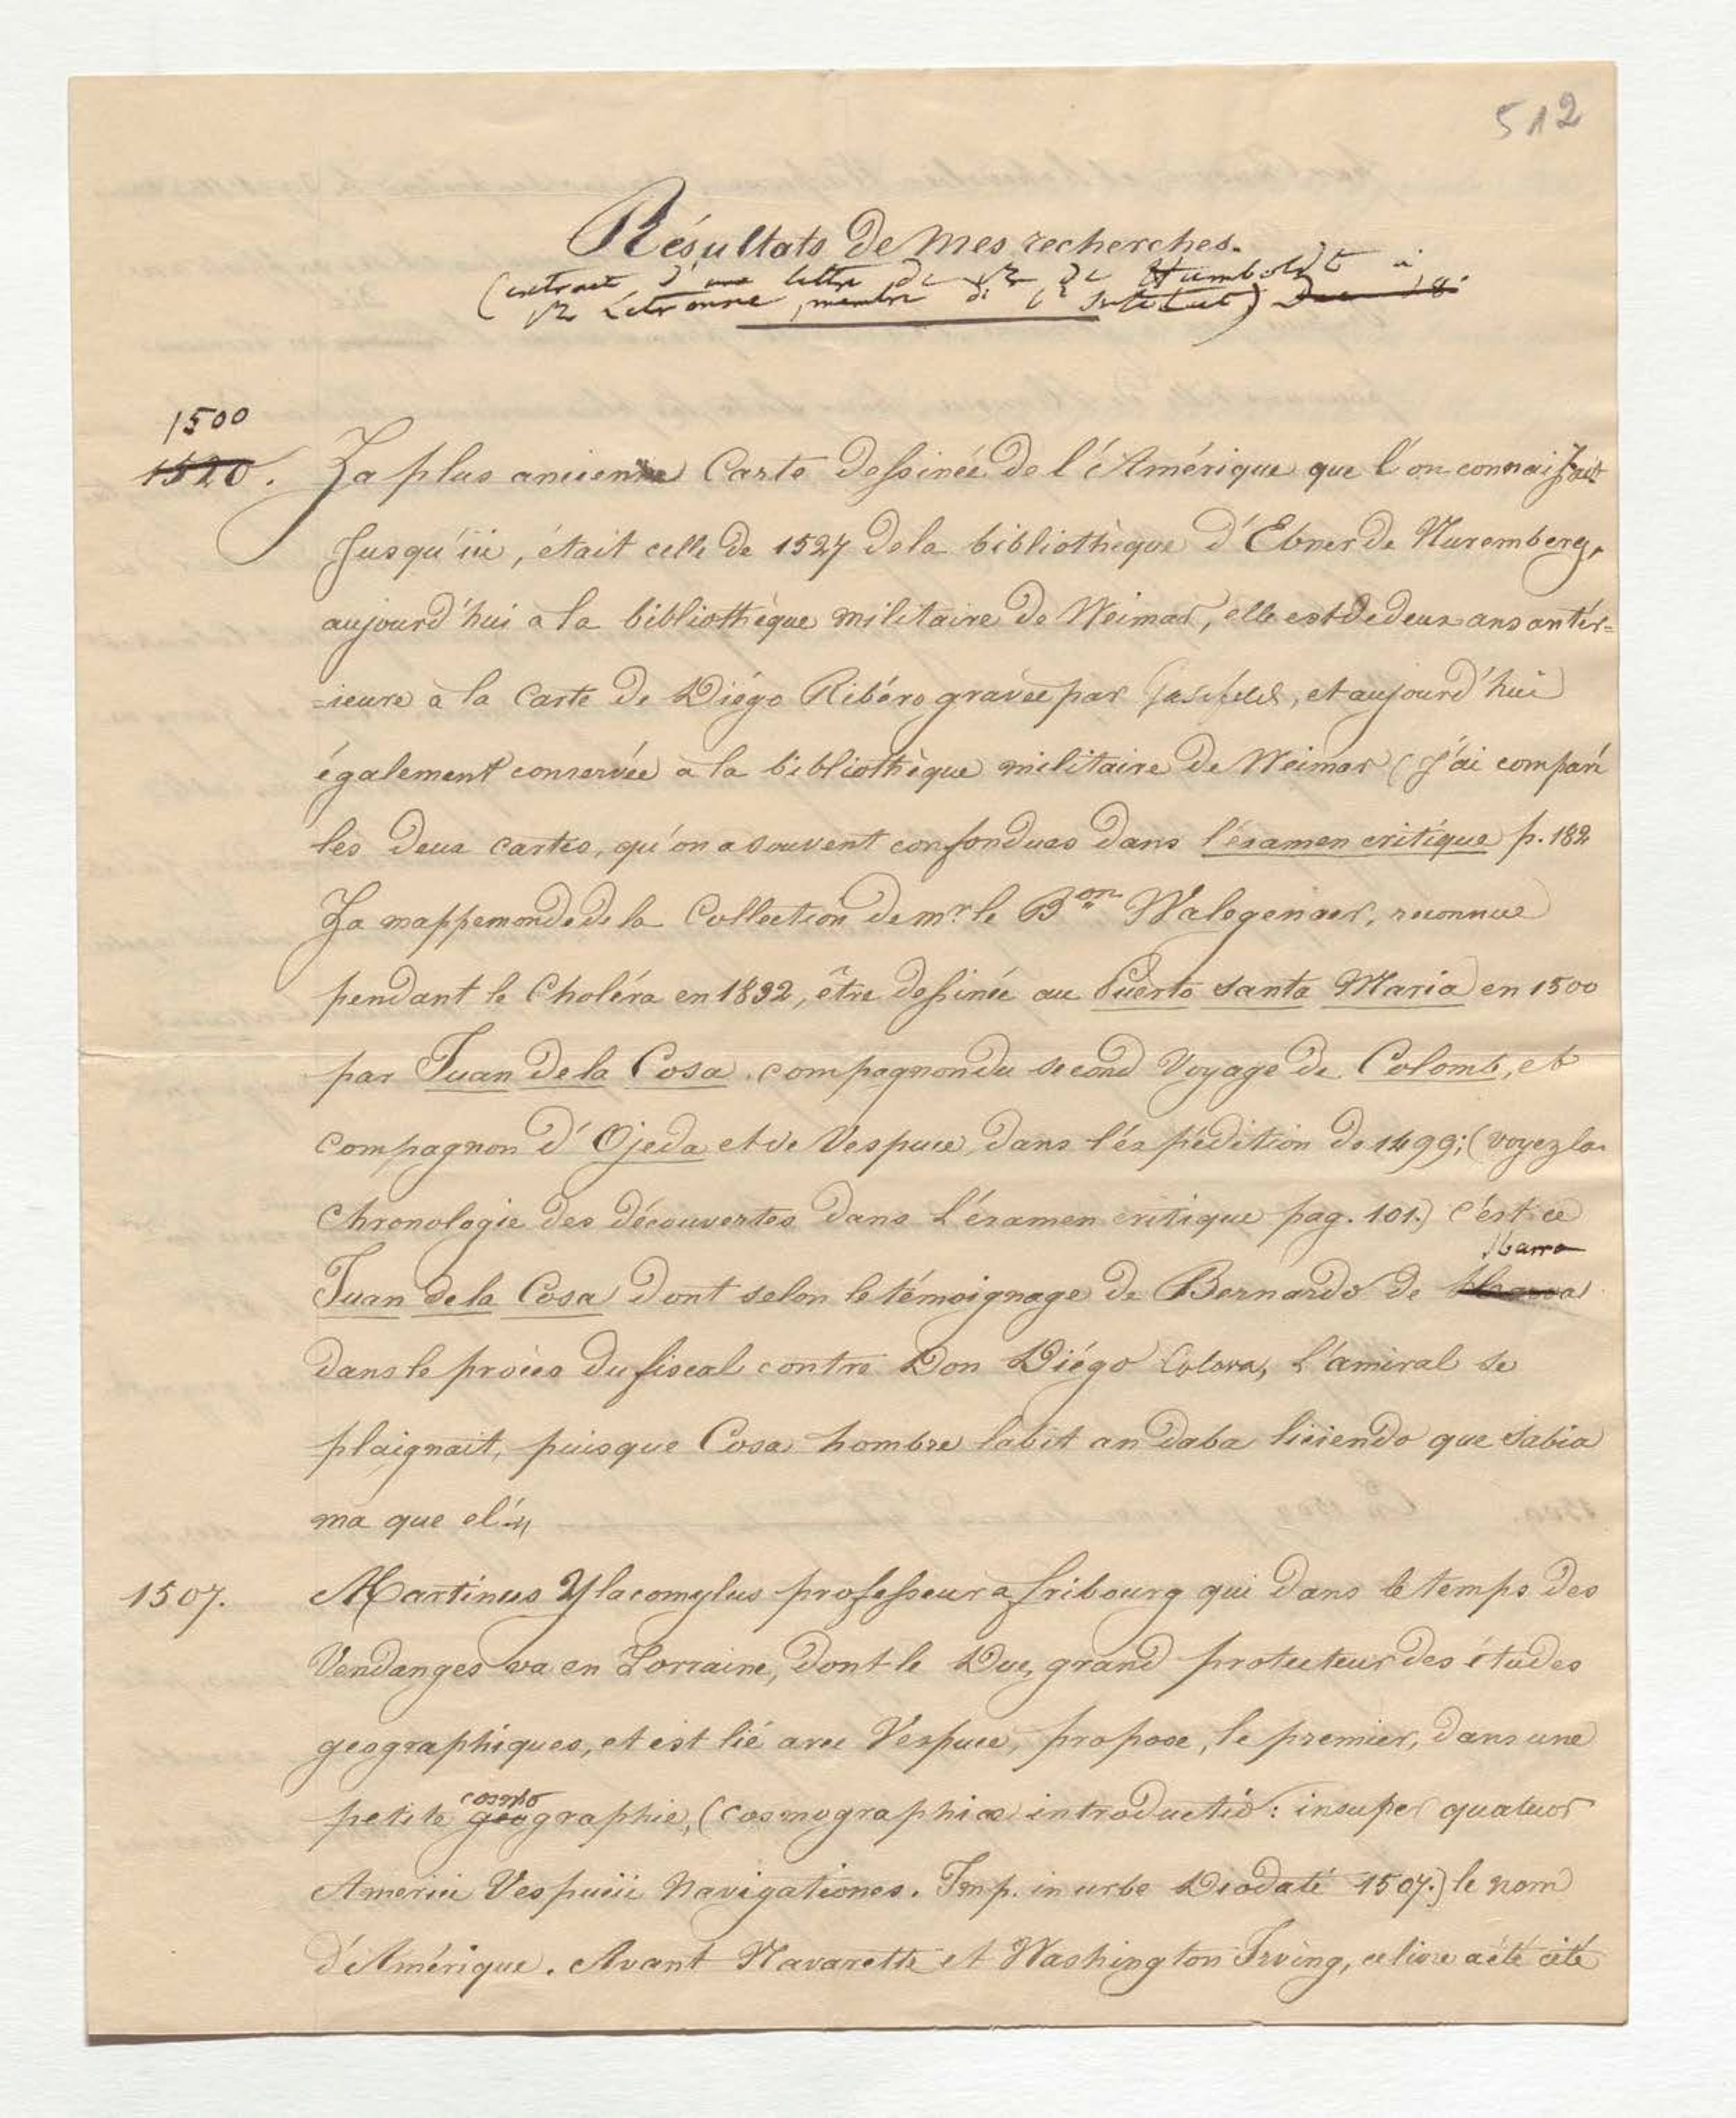 512
Résultats de mes recherches.
(extrait d'une lettre de Mr de Humboldt à
Mr Letronne, membre de l'Institut)
1500
1520. La plus ancienne Carte dessinée de l'Amérique que l'on connaissait
jusqu'ici, était celle de 1527 de la bibliothèque d'Ebner de Nuremberg,
aujourd'hui a la bibliothèque militaire de Weimar, elle est de deux ans antér=
=ieure à la Carte de Diégo Ribéro gravée par Gusefeld, et aujourd'hui
également conservée à la bibliothèque militaire de Weimar (J'ai comparé
les deux cartes, qu'on a souvent confondues dans l'éxamen critique p. 182
La mappemonde de la Collection de mr. le Bon Walegenaer, reconnue
pendant le Choléra en 1832, être dessinée au Puerto Santa Maria en 1500
par Juan de la Cosa, compagnon du second Voyage de Colomb, et
compagnon d'Ojeda et de Vespuce, dans l'éxpédition de 1499; (voyez la
Chronologie des découvertes dans L'éxamen critique pag. 101.) c'est ce
Ibarra
Juan de la Cosa dont selon le témoignage de Bernardo de
dans le procès du fiscal contre Don Diégo Colon, L'amiral se
plaignait, puisque Cosa hombre labit andaba liciendo que Sabia
ma que el."
1507. Martinus Ylacomylus professeur a fribourg qui dans le temps des
Vendanges va en Lorraine, dont le Duc, grand protecteur des études
géographiques, et est lié avec Vespuce, propose, le premier, dans une
cosmo
petite géographie, (cosmographiæ introductio: insuper quatuor
Americi Vespucii Navigationes. Imp. in urbe Deodaté 1507.) le nom
d'Amérique. Avant Navarette et Washington Irving, ce livre a été cité